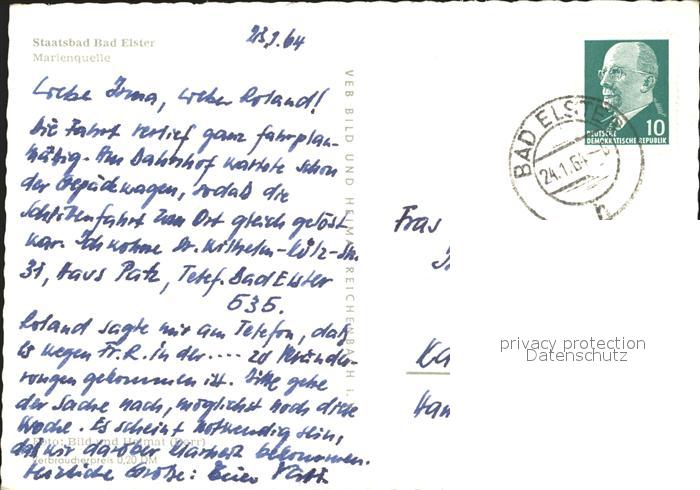 Staatsbad Bad Elster
Marienquelle
23.1.64
Liebe Irma, lieber Roland!
Die Fahrt verlief ganz fahrplan-
mäßig. Am Bahnhof wartete schon
der Gepäckwagen, sodaß die
Schlittenfahrt zum Ort gleich gelöst
war. Ich wohne Dr. Wilhelm-Külz-Str.
31, Haus Patz, Telef. Bad Elster
535.
Roland sagte mir am Telefon, daß
es wegen Fr. R. in der .... zu Verände-
rungen gekommen ist. Bitte gehe
der Sache nach, möglichst noch diese
Woche. Es scheint notwendig sein,
daß wir darüber Klarheit bekommen.
Herzliche Grüße: Euer Vati
Foto: Bild und Heimat (Darr)
Verbraucherpreis 0,20 DM
VEB BILD UND HEIMAT REICHENBACH I.
10
DEUTSCHE
DEMOKRATISCHE REPUBLIK
BAD ELSTER
24.1.64
Frau
privacy protection
Datenschutz